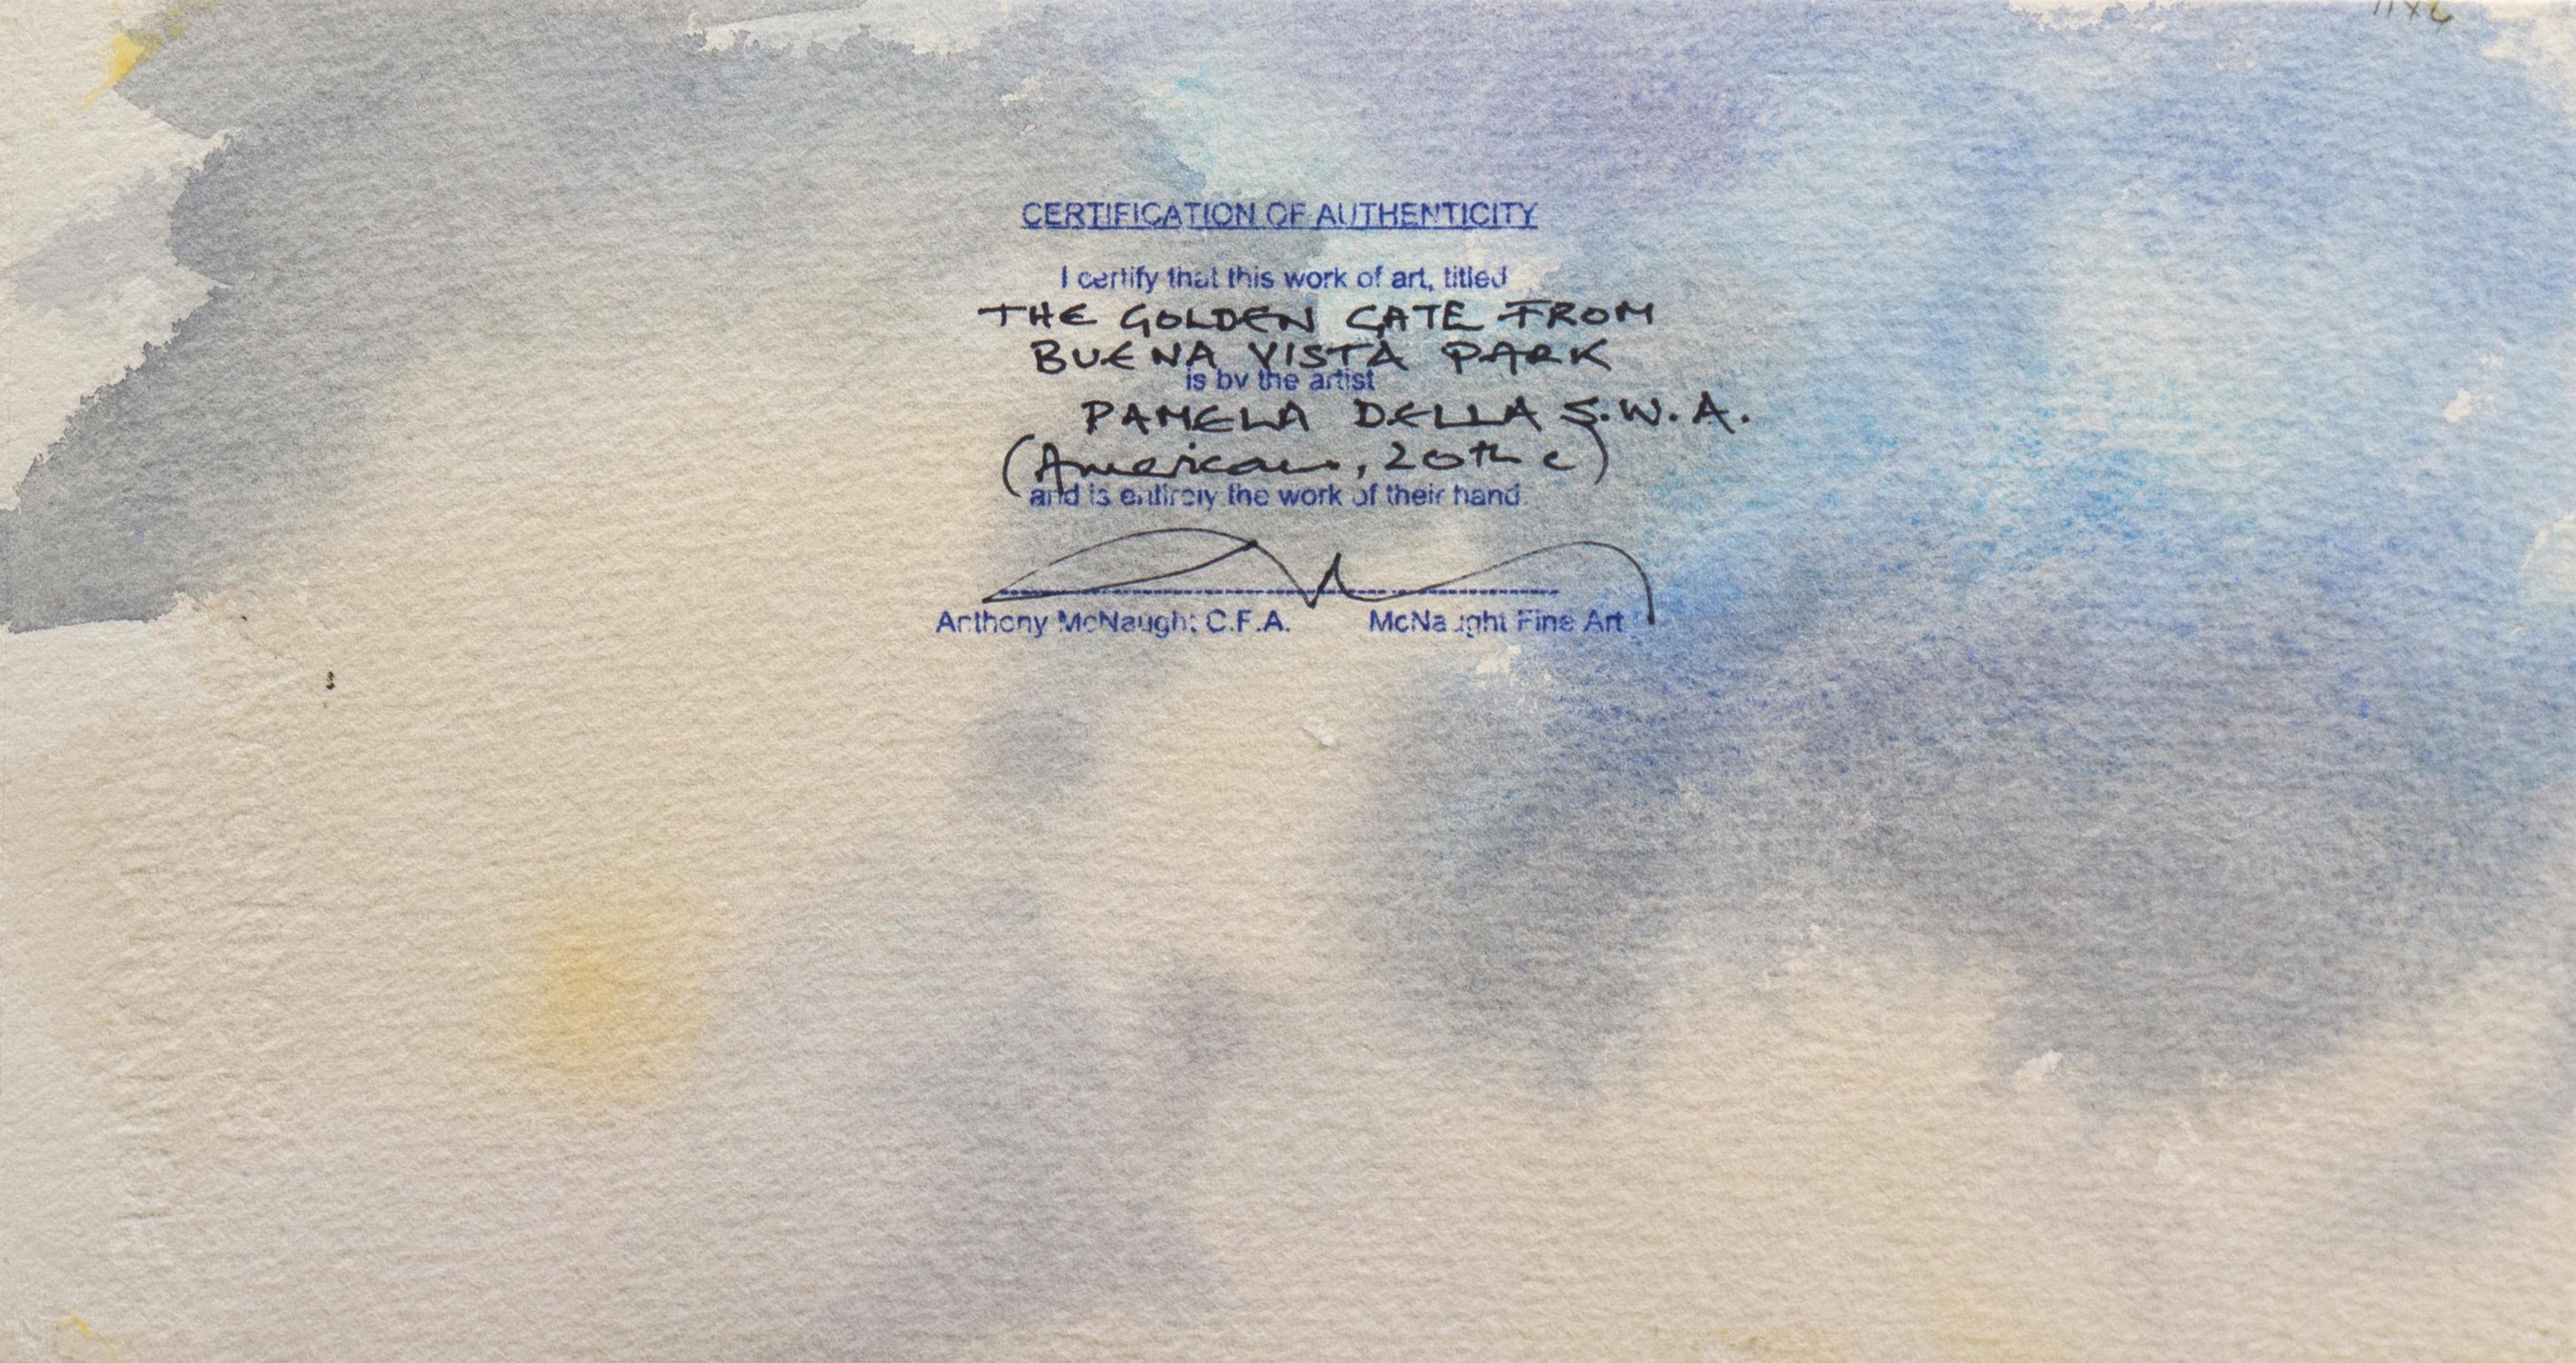 CERTIFICATION OF AUTHENTICITY
I certify that this work of art, titled
THE GOLDEN GATE FROM
BUENA VISTA PARK
is by the artist
PAMELA DELLA S.W.A.
(American, 20th c)
and is entirely the work of their hand.
Anthony McNaught C.F.A. McNaught Fine Art